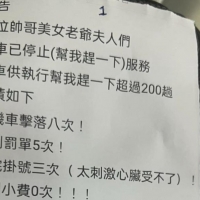 告
1
位帥哥美女老爺夫人們
車已停止(幫我趕一下)服務
車供執行幫我趕一下超過200趟
績如下
機車擊落八次！
到罰單5次！
院掛號三次（太刺激心臟受不了）！
小費0次！！！